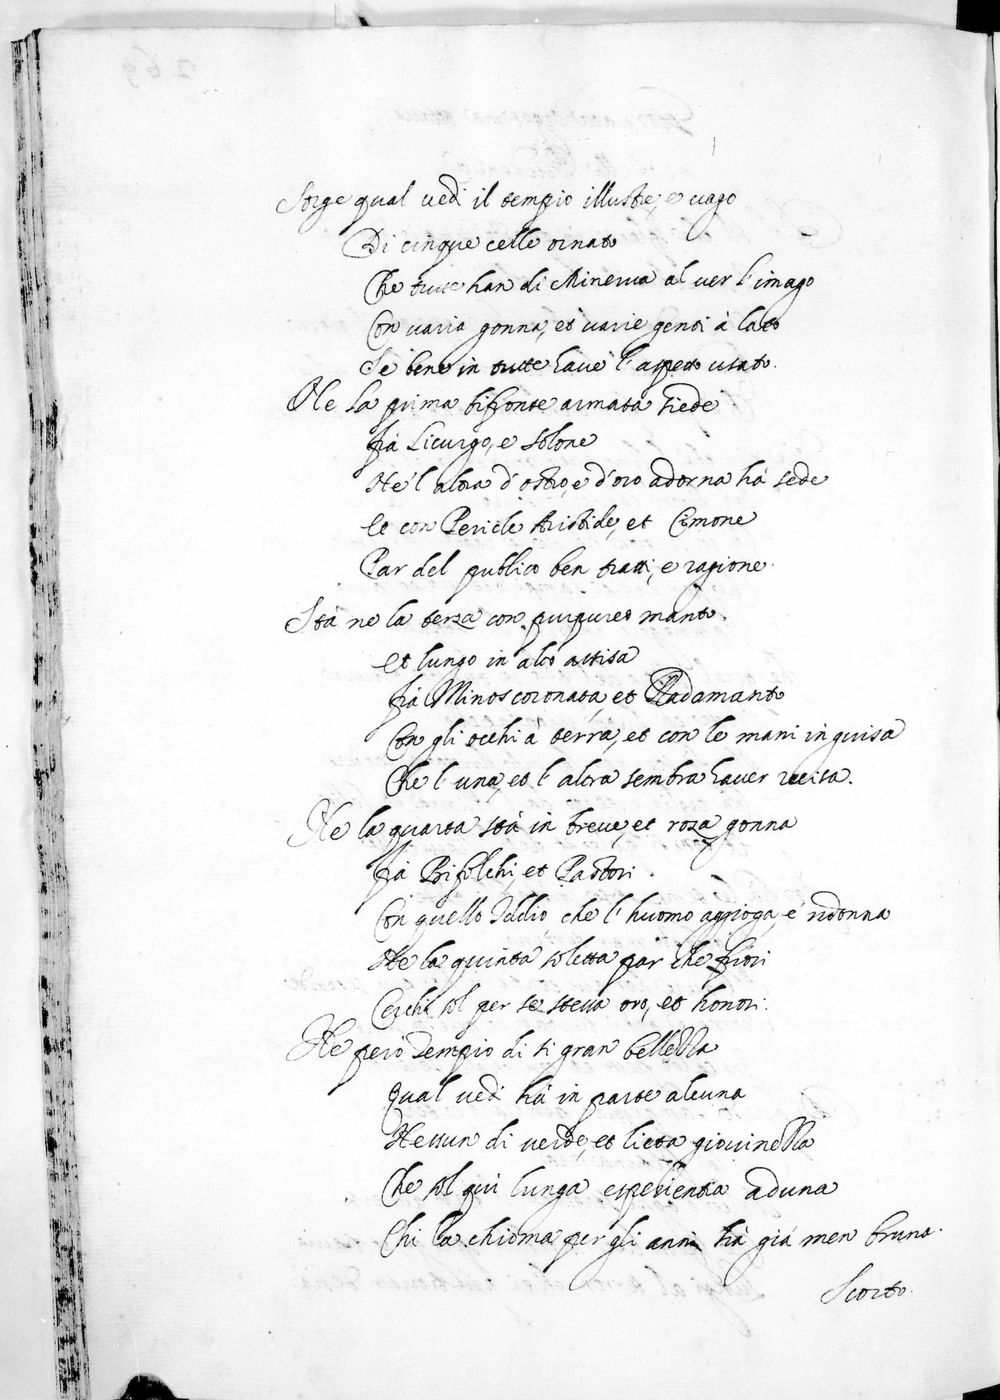 Sorge qual vedi il tempio illustre, e vago
Di cinque celle ornato
Che tutte han di Minerva al ver l'imago
Con varia gonna, et varie genti à lato
Se bene in tutte have l'aspetto usato.
Ne la prima bifronte armata siede
frà Licurgo, e Solone
Ne l'altra d'ostro, e d'oro adorna hà sede
Et con Pericle Aristide, et Cimone
Par del publico ben tratti, e ragione.
Stà ne la terza con purpureo manto.
et lungo in alto assisa
frà Minos coronata, et Radamanto
Con gli occhi à terra, et con le mani in guisa
Che l'una, et l'altra sembra haver recisa.
Ne la quarta stà in breve, et roza gonna
frà Bifolchi, et Pastori.
Con quello Iddio, che l'huomo aggioga, e indonna
Ne la quinta soletta par che fiori
Cerchi sol per se stessa oro, et honori.
Ne però tempio di si gran bellezza
Qual vedi hà in parte alcuna
Nessun di verde, et lieta giovinezza
Che sol qui lunga esperientia aduna
Chi la chioma per gli anni hà già men bruna.
Scorto.